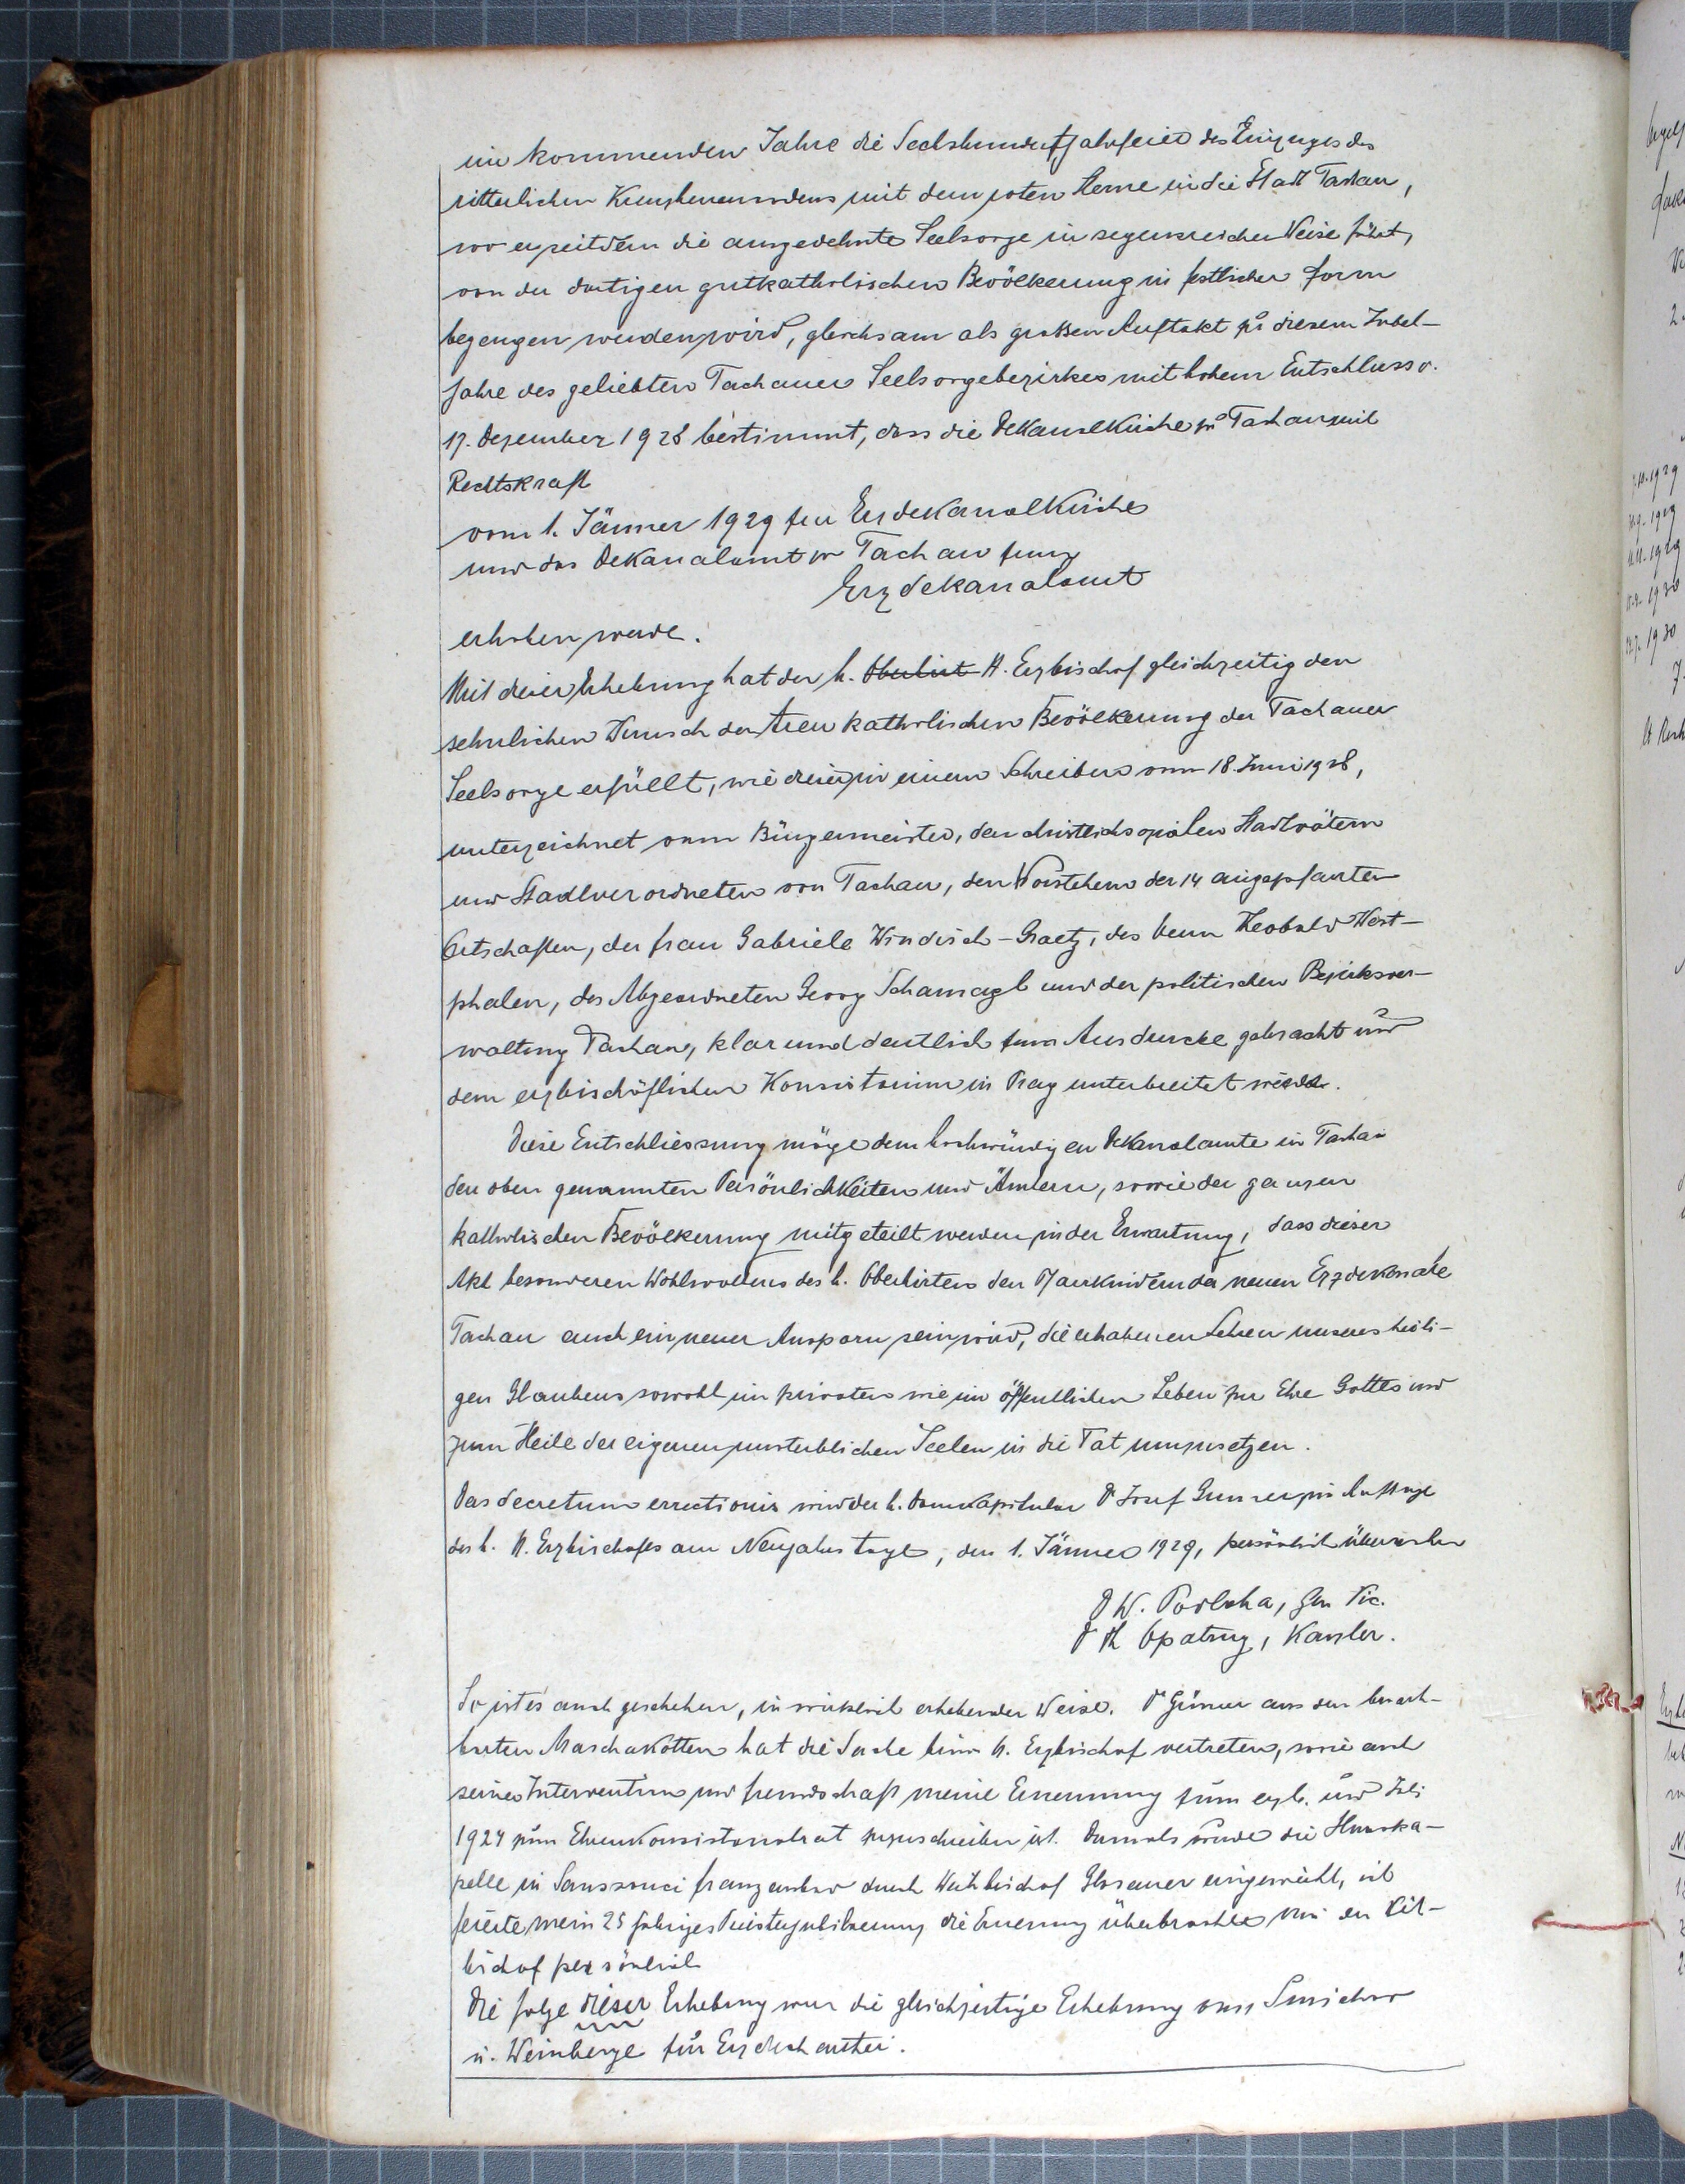 im kommenden Jahre die Sechshundertjahrfeier des Einzuges des
ritterlichen Kreuzherrenordens mit dem roten Sterne in die Stadt Tachau,
wo er seitdem die ausgedehnte Seelsorge in segensreicher Weise führt,
von der dortigen gutkatholischen Bevölkerung in festlicher Form
begangen werden wird, gleichsam als grossen Auftakt zu diesem Jubel-
jahre des geliebten Tachauer Seelsorgebezirkes mit hohem Entschluss v.
17. Dezember 1928 bestimmt, dass die Dekanalkirche in Tachau mit
Rechtskraft
vom 1. Jänner 1929 zur Erzdekanalkirche
und das Dekanalamt in Tachau zum
Erzdekanalamt
erhoben werde.
Mit dieser Erhebung hat der h. Oberhirt H. Erzbischof gleichzeitig den
sehnlichen Wunsch der treu katholischen Bevölkerung der Tachauer
Seelsorge erfüllt, wie dieser in einem Schreiben vom 18. Juni 1928,
unterzeichnet vom Bürgermeister, den christlichsozialen Stadträten
und Stadtverordneten von Tachau, den Vorstehern der 14 eingepfarrten
Ortschaften, der Frau Gabriele Windisch-Graetz, des Herrn Theobald West-
phalen, des Abgeordneten Georg Scharnagl und der politischen Bezirksver-
waltung Tachau, klar und deutlich zum Ausdrucke gebracht und
dem erzbischöflichen Konsistorium in Prag unterbreitet wurde.
Diese Entschliessung möge dem hochwürdigen Dekanalamte in Tachau
den oben genannten Persönlichkeiten und Ämtern, sowie der ganzen
katholischen Bevölkerung mitgeteilt werden in der Erwartung, dass dieser
Akt besonderen Wohlwollens des h. Oberhirten den Pfarrkindern der neuen Erzdekanate
Tachau auch ein neuer Ansporn sein wird, die erhabenen Lehren unseres heili-
gen Glaubens sowohl im privaten wie im öffentlichen Leben zur Ehre Gottes und
zum Heile der eigenen unsterblichen Seelen in die Tat umzusetzen.
Das decretum errectionis wird der h. Domkapitular Dr Josef Gunner im Auftrage
des h. H. Erzbischofes am Neujahrstage, den 1. Jänner 1929, persönlich überreichen
Dr W. Podlaha, Gen Vic.
Dr Th Opatrny, Kanzler.
So ist es auch geschehen, in wirklich erhebender Weise. Dr Günner aus den benach-
barten Maschakotten hat die Sache beim H. Erzbischof vertreten, sowie auch
seiner Intervention und Freundschaft meine Ernennung zum erzb. Juli
1924 zum Ehrenkonsistorialrat zuzuschreiben ist. Damals wurde die Hauska-
pelle in Sanssouci Franzensbad durch Weihbischof Glosauer eingeweiht, ich
feierte mein 25 jähriges Priesterjubiläum, die Ernennung überbrachte mir der
bischof persönlich
Die Folge dieser Erhebung war die gleichzeitige Erhebung von Smichow
u. Weinberge zur Erzdechantei.